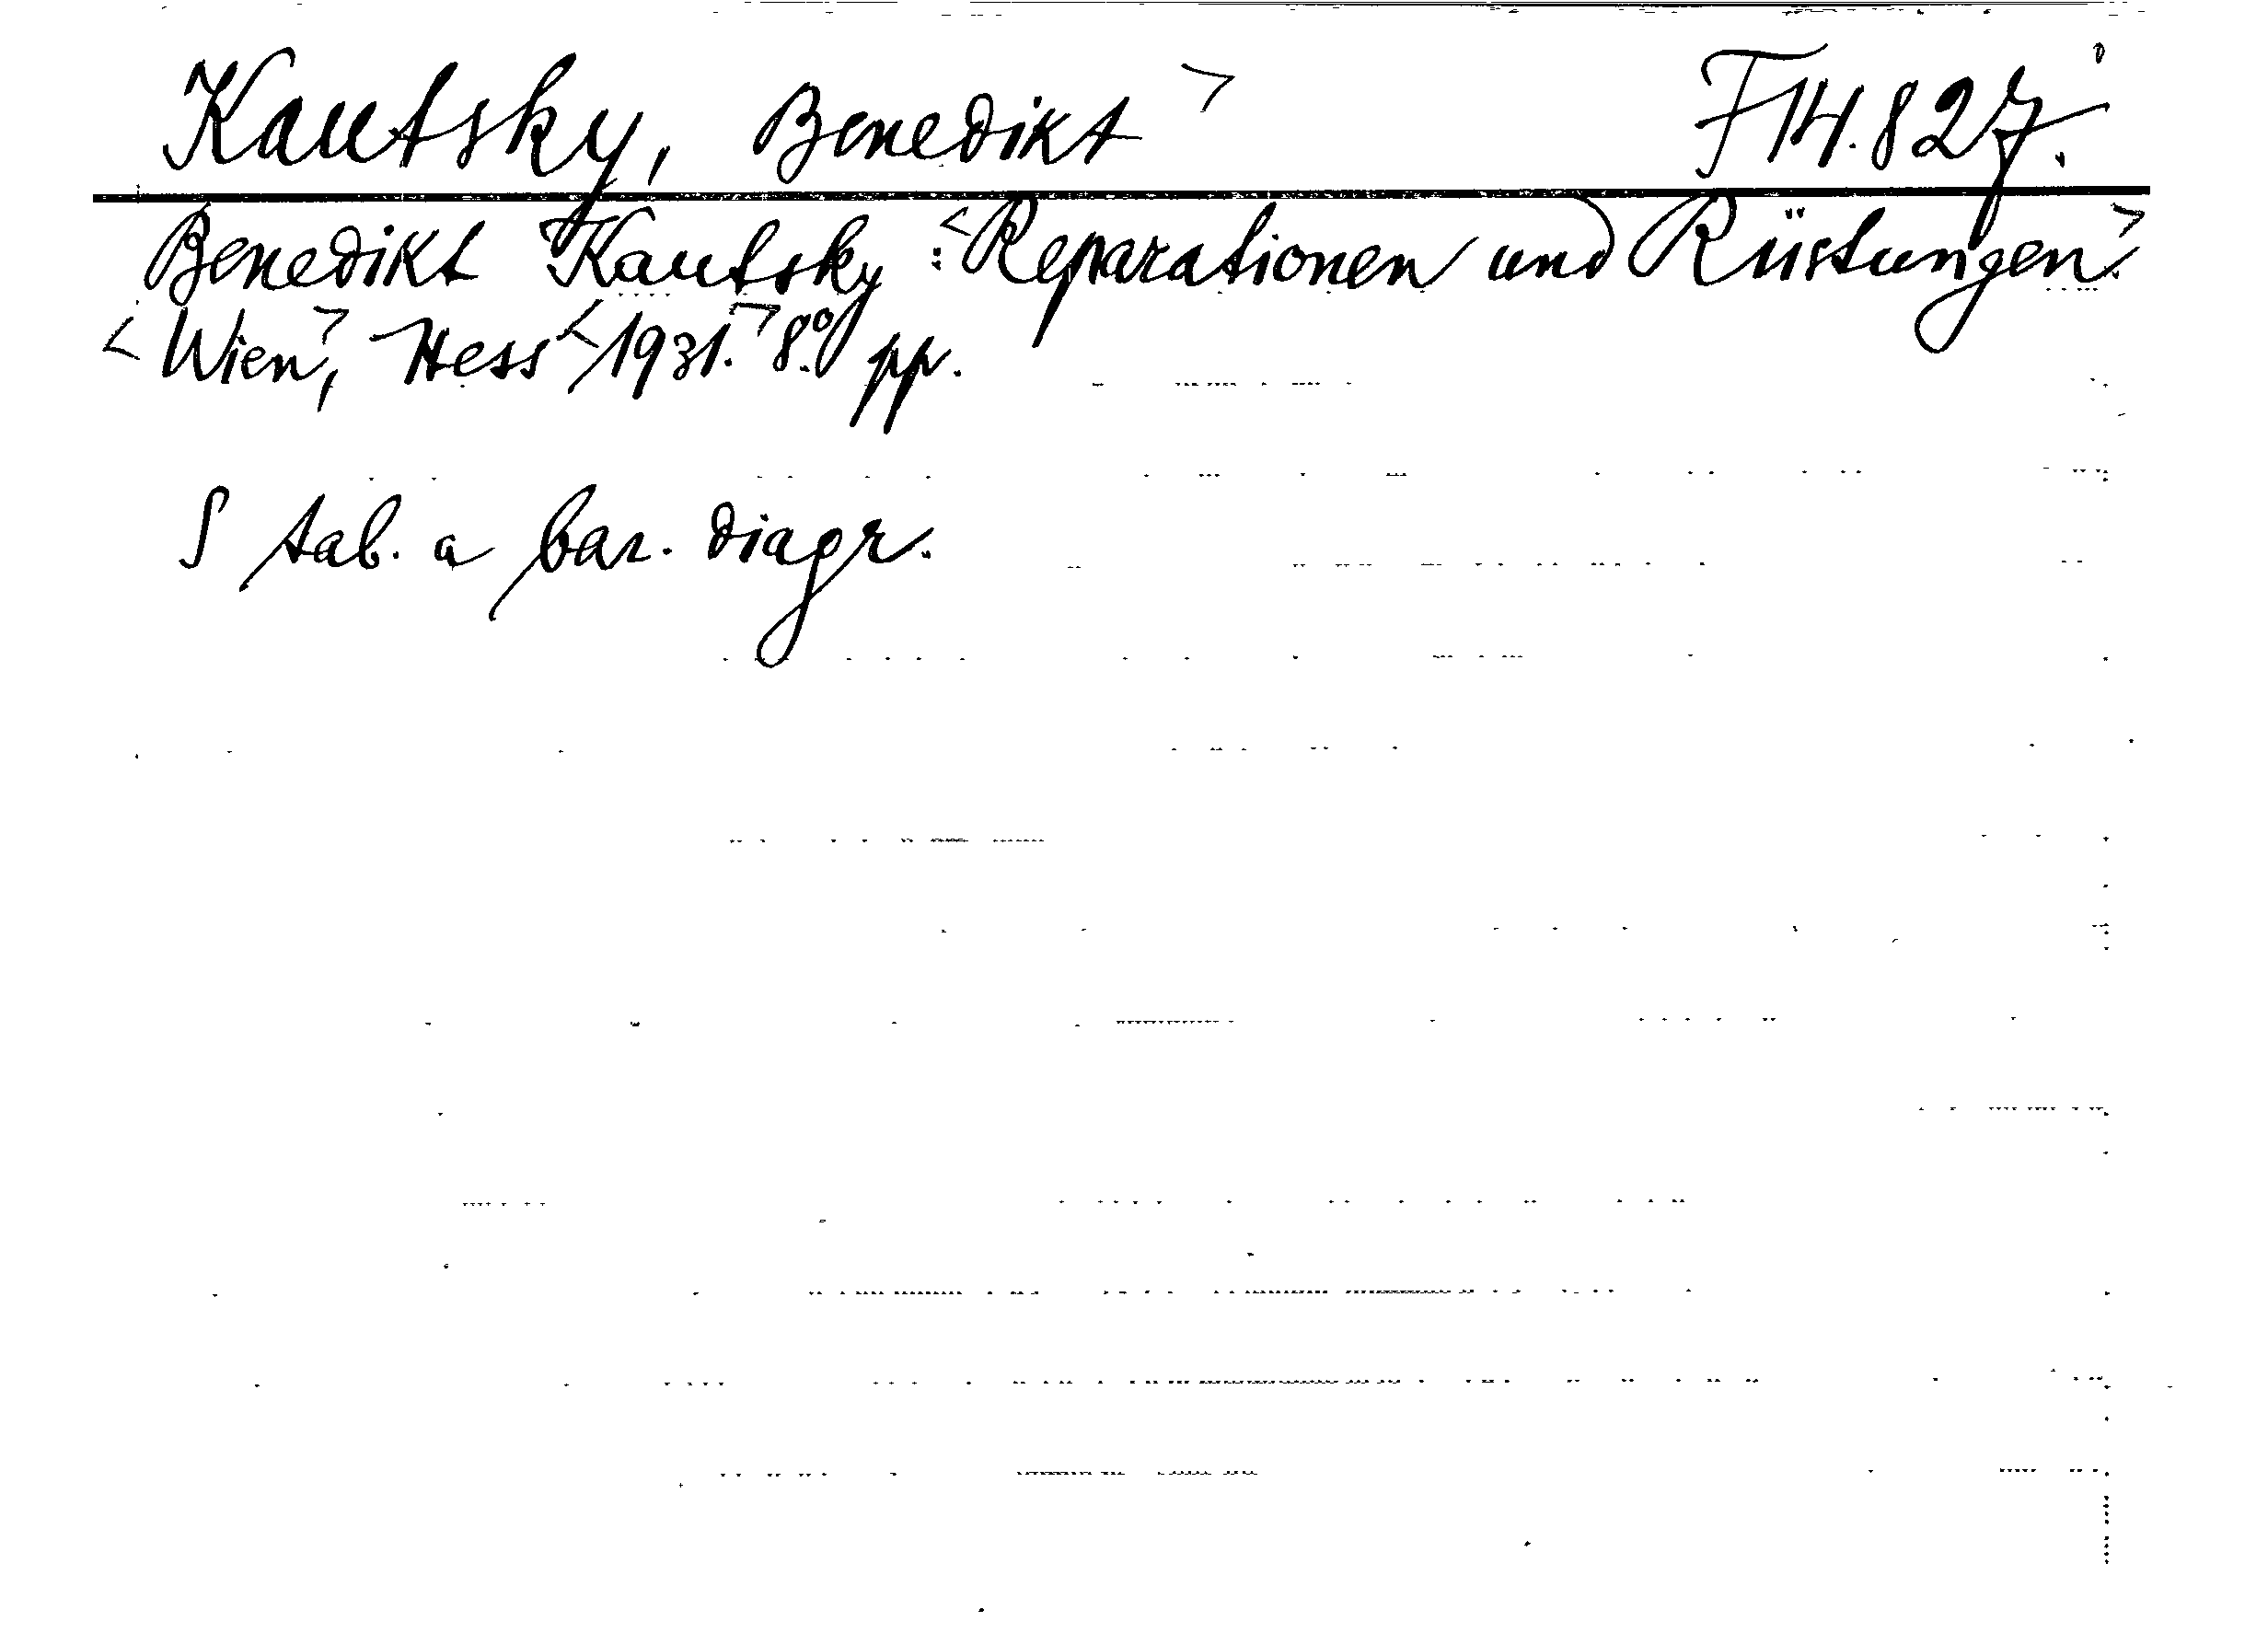 Kautsky, Benedikt> F 14.827.
Benedikt Kautsky: <Reparationen und Rüstungen.>
<Wien>, Hess <1931.> 8.° pp.
S tab. a bar. diagr.